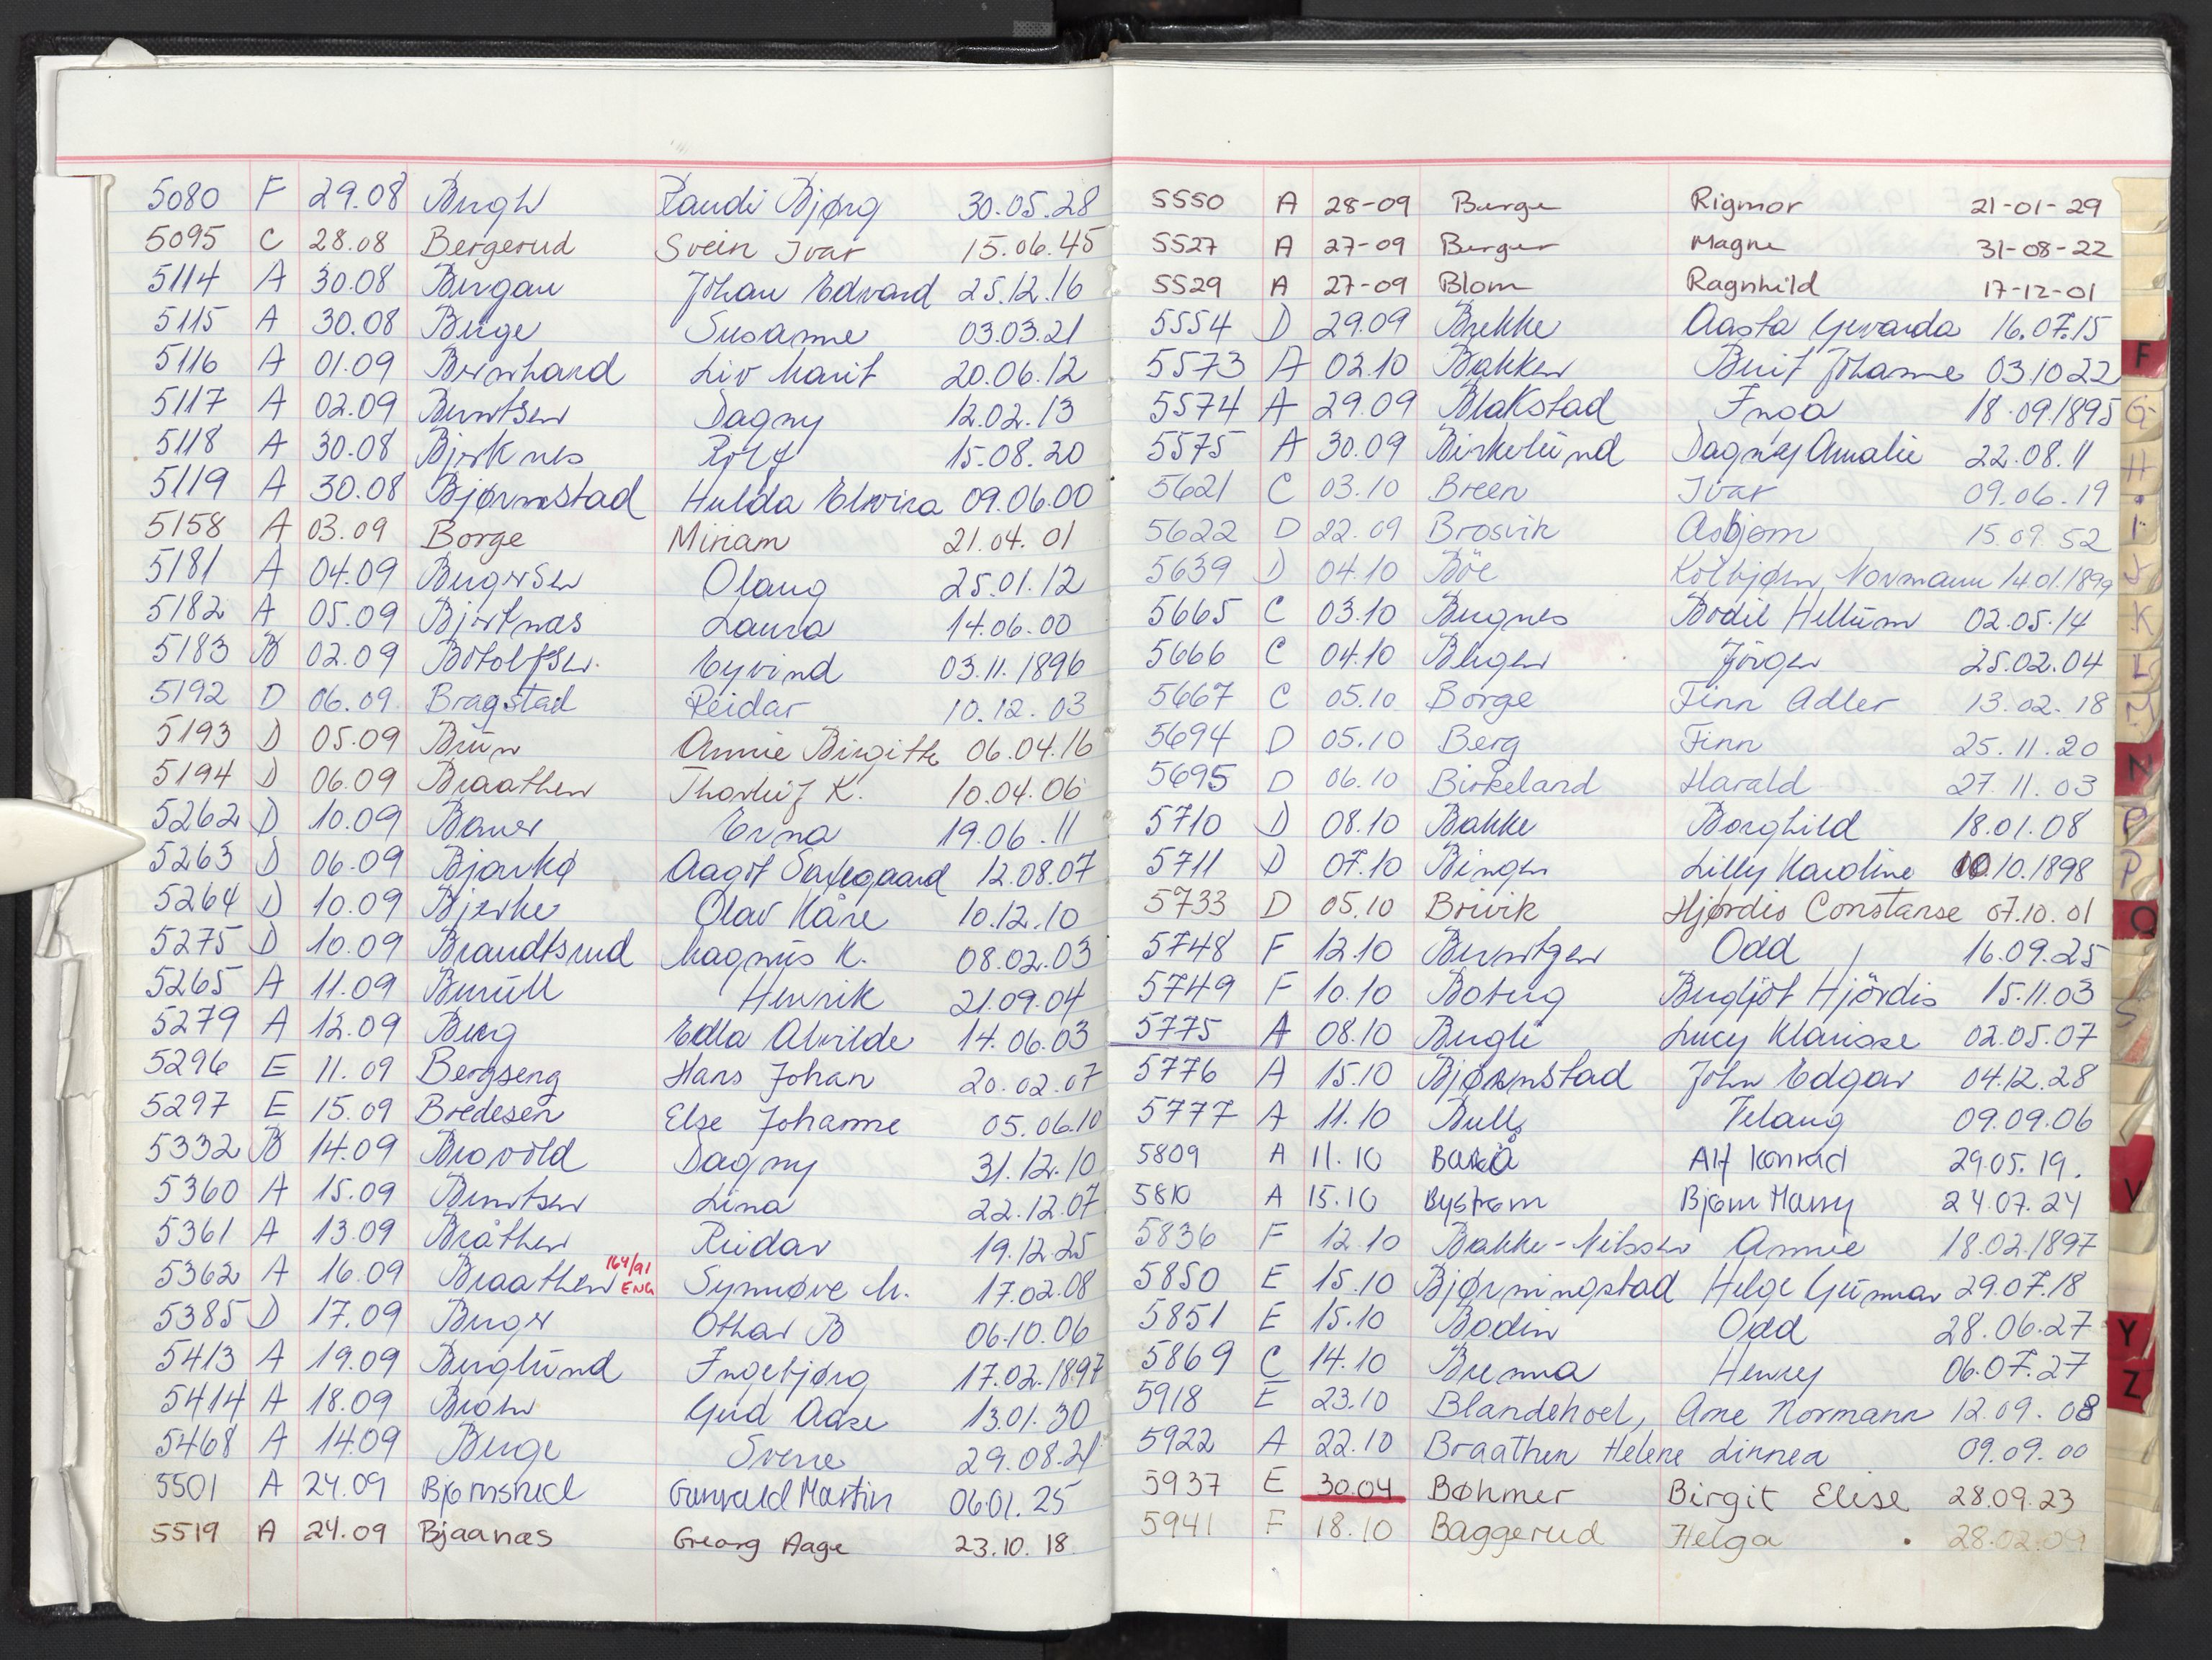 5080 F 29.08 Bergh Randi Bjørg 30.05.28
5095 C 28.08 Bergerud Svein Ivar 15.06.45
5114 A 30.08 Bergan Johan Edvard 25.12.16
5115 A 30.08 Berge Susanne 03.03.21
5116 A 01.09 Bernhard Liv Marit 20.06.12
5117 A 02.09 Berntsen Dagny 12.02.13
5118 A 30.08 Bjerknes Rolf 15.08.20
5119 A 30.08 Bjørnstad Hulda Elvira 09.06.00
5158 A 03.09 Borge Miriam 21.04.01
5181 A 04.09 Bergersen Olaug 25.01.12
5182 A 05.09 Bjerknæs Laura 14.06.00
5183 B 02.09 Botolfsen Eyvind 03.11.1896
5192 D 06.09 Bragstad Reidar 10.12.03
5193 D 05.09 Brun Annie Birgithe 06.04.16
5194 D 06.09 Braathen Thorleif K. 10.04.06
5262 D 10.09 Bauer Erna 19.06.11
5263 D 06.09 Bjarkø Aagot 12.08.07
5264 D 10.09 Bjerke Olav Kåre 10.12.10
5275 D 10.09 Brandtsrud Magnus K. 08.02.03
5265 A 11.09 Henrik 21.09.04
5279 A 12.09 Berg Edla Alvilde 14.06.03
5296 E 11.09 Bergseng Hans Johan 20.02.07
5297 E 15.09 Bredesen Else Johanne 05.06.10
5332 B 14.09 Brovold Dagny 31.12.10
5360 A 15.09 Berntsen Lina 22.12.07
5361 A 13.09 Bråthen Reidar 19.12.25
5362 A 16.09 Braathen 164/91 ENG Synnøve M. 17.02.08
5385 D 17.09 Berger Othar B 06.10.06
5413 A 19.09 Berglund Ingebjørg 17.02.1897
5414 A 18.09 Gerd Aase 13.01.30
5468 A 14.09 Berge Sverre 29.08.21
5501 A 24.09 Bjørnsrud Gunvald Martin 06.01.25
5519 A 24.09 Bjaanæs Georg Aage 23.10.18
5550 A 28-09 Berge Rigmor 21-01-29
5527 A 27-09 Berger Magne 31-08-22
5529 A 27-09 Blom Ragnhild 17-12-01
5554 D 29.09 Brekke Aasta Gerarda 16.07.15
5573 A 02.10 Bakken Berit Johanne 03.10 22
5574 A 29.09 Blakstad Inga 18.09.1895
5575 A 30.09 Birkelund Dagny Amalie 22.08.11
5621 C 03.10 Breen Ivar 09.06.19
5622 D 22.09 Brosvik Asbjørn 15.09.52
5639 D 04.10 Böe Kolbjørn Normann 14.01.1899
5665 C 03.10 Bergnes Bodil Hellum 02.05.14
5666 C 04.10 Berger Jörgen 25.02.04
5667 C 05.10 Borge Finn Adler 13.02.18
5694 D 05.10 Berg Finn 25.11.20
5695 D 06.10 Birkeland Harald 27.11.03
5710 D 08.10 Bakke Borghild 18.01.08
5711 D 07.10 Bingen Lilly Karoline 10.10.1898
5733 D 05.10 Breivik Hjørdis Constanse 07.10.01
5748 F 12.10 Berntzen Odd 16.09.25
5749 F 10.10 Boberg Bergljot Hjördis 15.11.03
5775 A 08.10 Bergli Lucy Klarisse 02.05.07
5776 A 15.10 Bjørnstad John Edgar 04.12.28
5777 A 11.10 Bull Velaug 09.09.06
5809 A 11.10 Alf Konrad 29.05.19.
5810 A 15.10 Bystrøm Bjørn Harry 24.07.24
5836 F 12.10 Bakke-Nilssen Annie 18.02.1897
5850 E 15.10 Bjørningstad Helge Gunnar 29.07.18
5851 E 15.10 Bodin Odd 28.06.27
5869 C 14.10 Brenna Henry 06.07.27
5918 E 23.10 Blandehoel, Arne Normann 12.09.08
5922 A 22.10 Braathen Helene Linnea 09.09.00
5937 E 30.04 Bøhmer Birgit Elise 28.09.23
5941 F 18.10 Baggerud Helga 28.02.09
F
G
H
I
J
K
L
M
N
P
P
Q
S
V
Y
Z